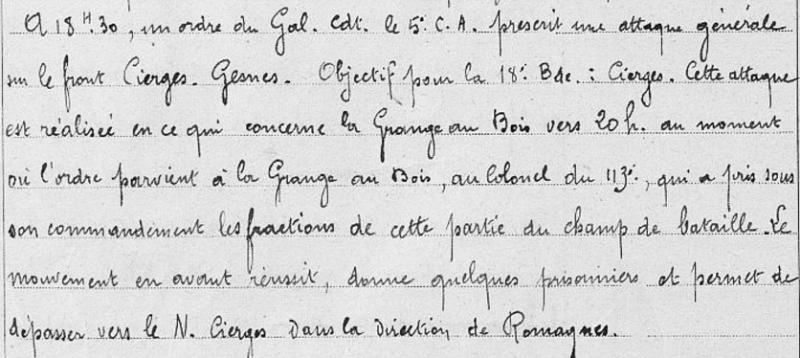 A 18H.30, un ordre du Gal. Cdt. le 5e C.A. prescrit une attaque générale
sur le front Cierges. Gesnes. Objectif pour la 18e Bde. : Cierges. Cette attaque
est réalisée en ce qui concerne la Grange au Bois vers 20h. au moment
où l'ordre parvient à la Grange au Bois, au Colonel du 113e, qui a pris sous
son commandement les fractions de cette partie du champ de bataille. Le
mouvement en avant réussit, donne quelques prisonniers et permet de
dépasser vers le N. Cierges dans la direction de Romagnes.